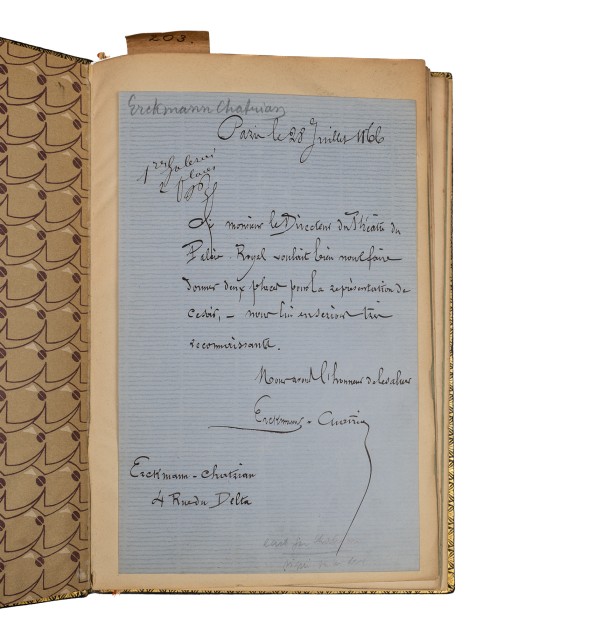 203.
Erckmann Chatrian
Paris le 28 Juillet 1866
1res Galerie
2 places
Si monsieur le Directeur du Théâtre du
Palais Royal voulait bien nous faire
donner deux places pour la représentation de
ce soir, – nous lui en serions très
reconnaissants.
Nous avons l'honneur de le saluer
Erckmann-Chatrian
Erckmann-Chatrian
4 Rue du Delta